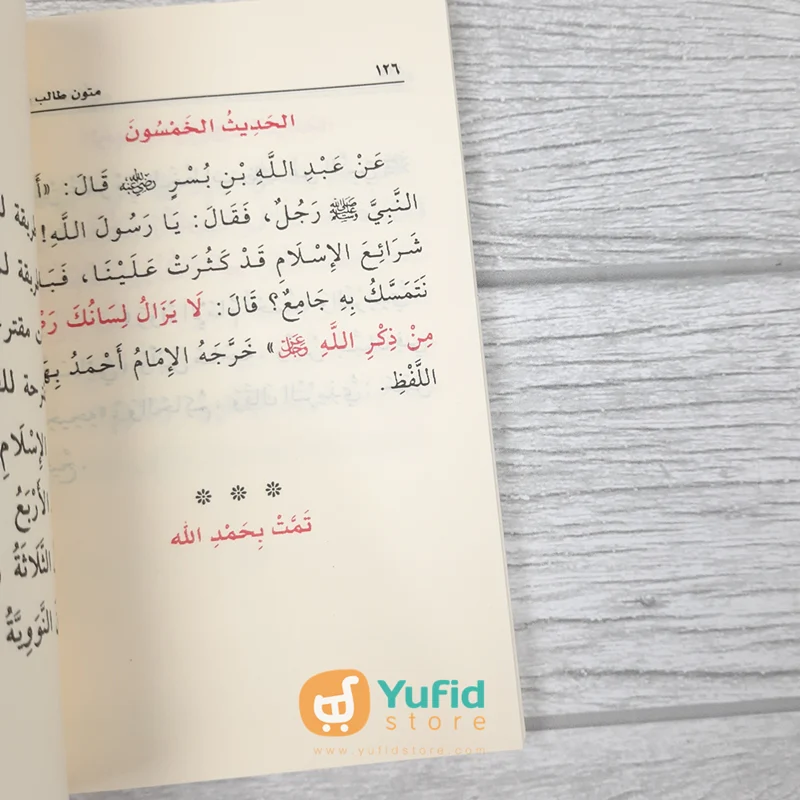 ١٢٦
متون طالب
الحَدِيثُ الخَمْسُونَ
عَنْ عَبْدِ اللَّهِ بْنِ بُسْرٍ رضي الله عنه قَالَ: «أَ
النَّبِيَّ ﷺ رَجُلٌ، فَقَالَ: يَا رَسُولَ اللَّهِ!
شَرَائِعَ الإِسْلَامِ قَدْ كَثُرَتْ عَلَيْنَا، فَبَا
نَتَمَسَّكُ بِهِ جَامِعٌ؟ قَالَ: لَا يَزَالُ لِسَانُكَ رَ
مِنْ ذِكْرِ اللَّهِ عز وجل» خَرَّجَهُ الإِمَامُ أَحْمَدُ بِهَ
اللَّفْظِ.
تَمَّتْ بِحَمْدِ الله
الإِسْلَامِ
الأَرْبَعُ
الثَّلَاثَةُ
النَّوَوِيَّةُ
Yufid
store
www.yufidstore.com